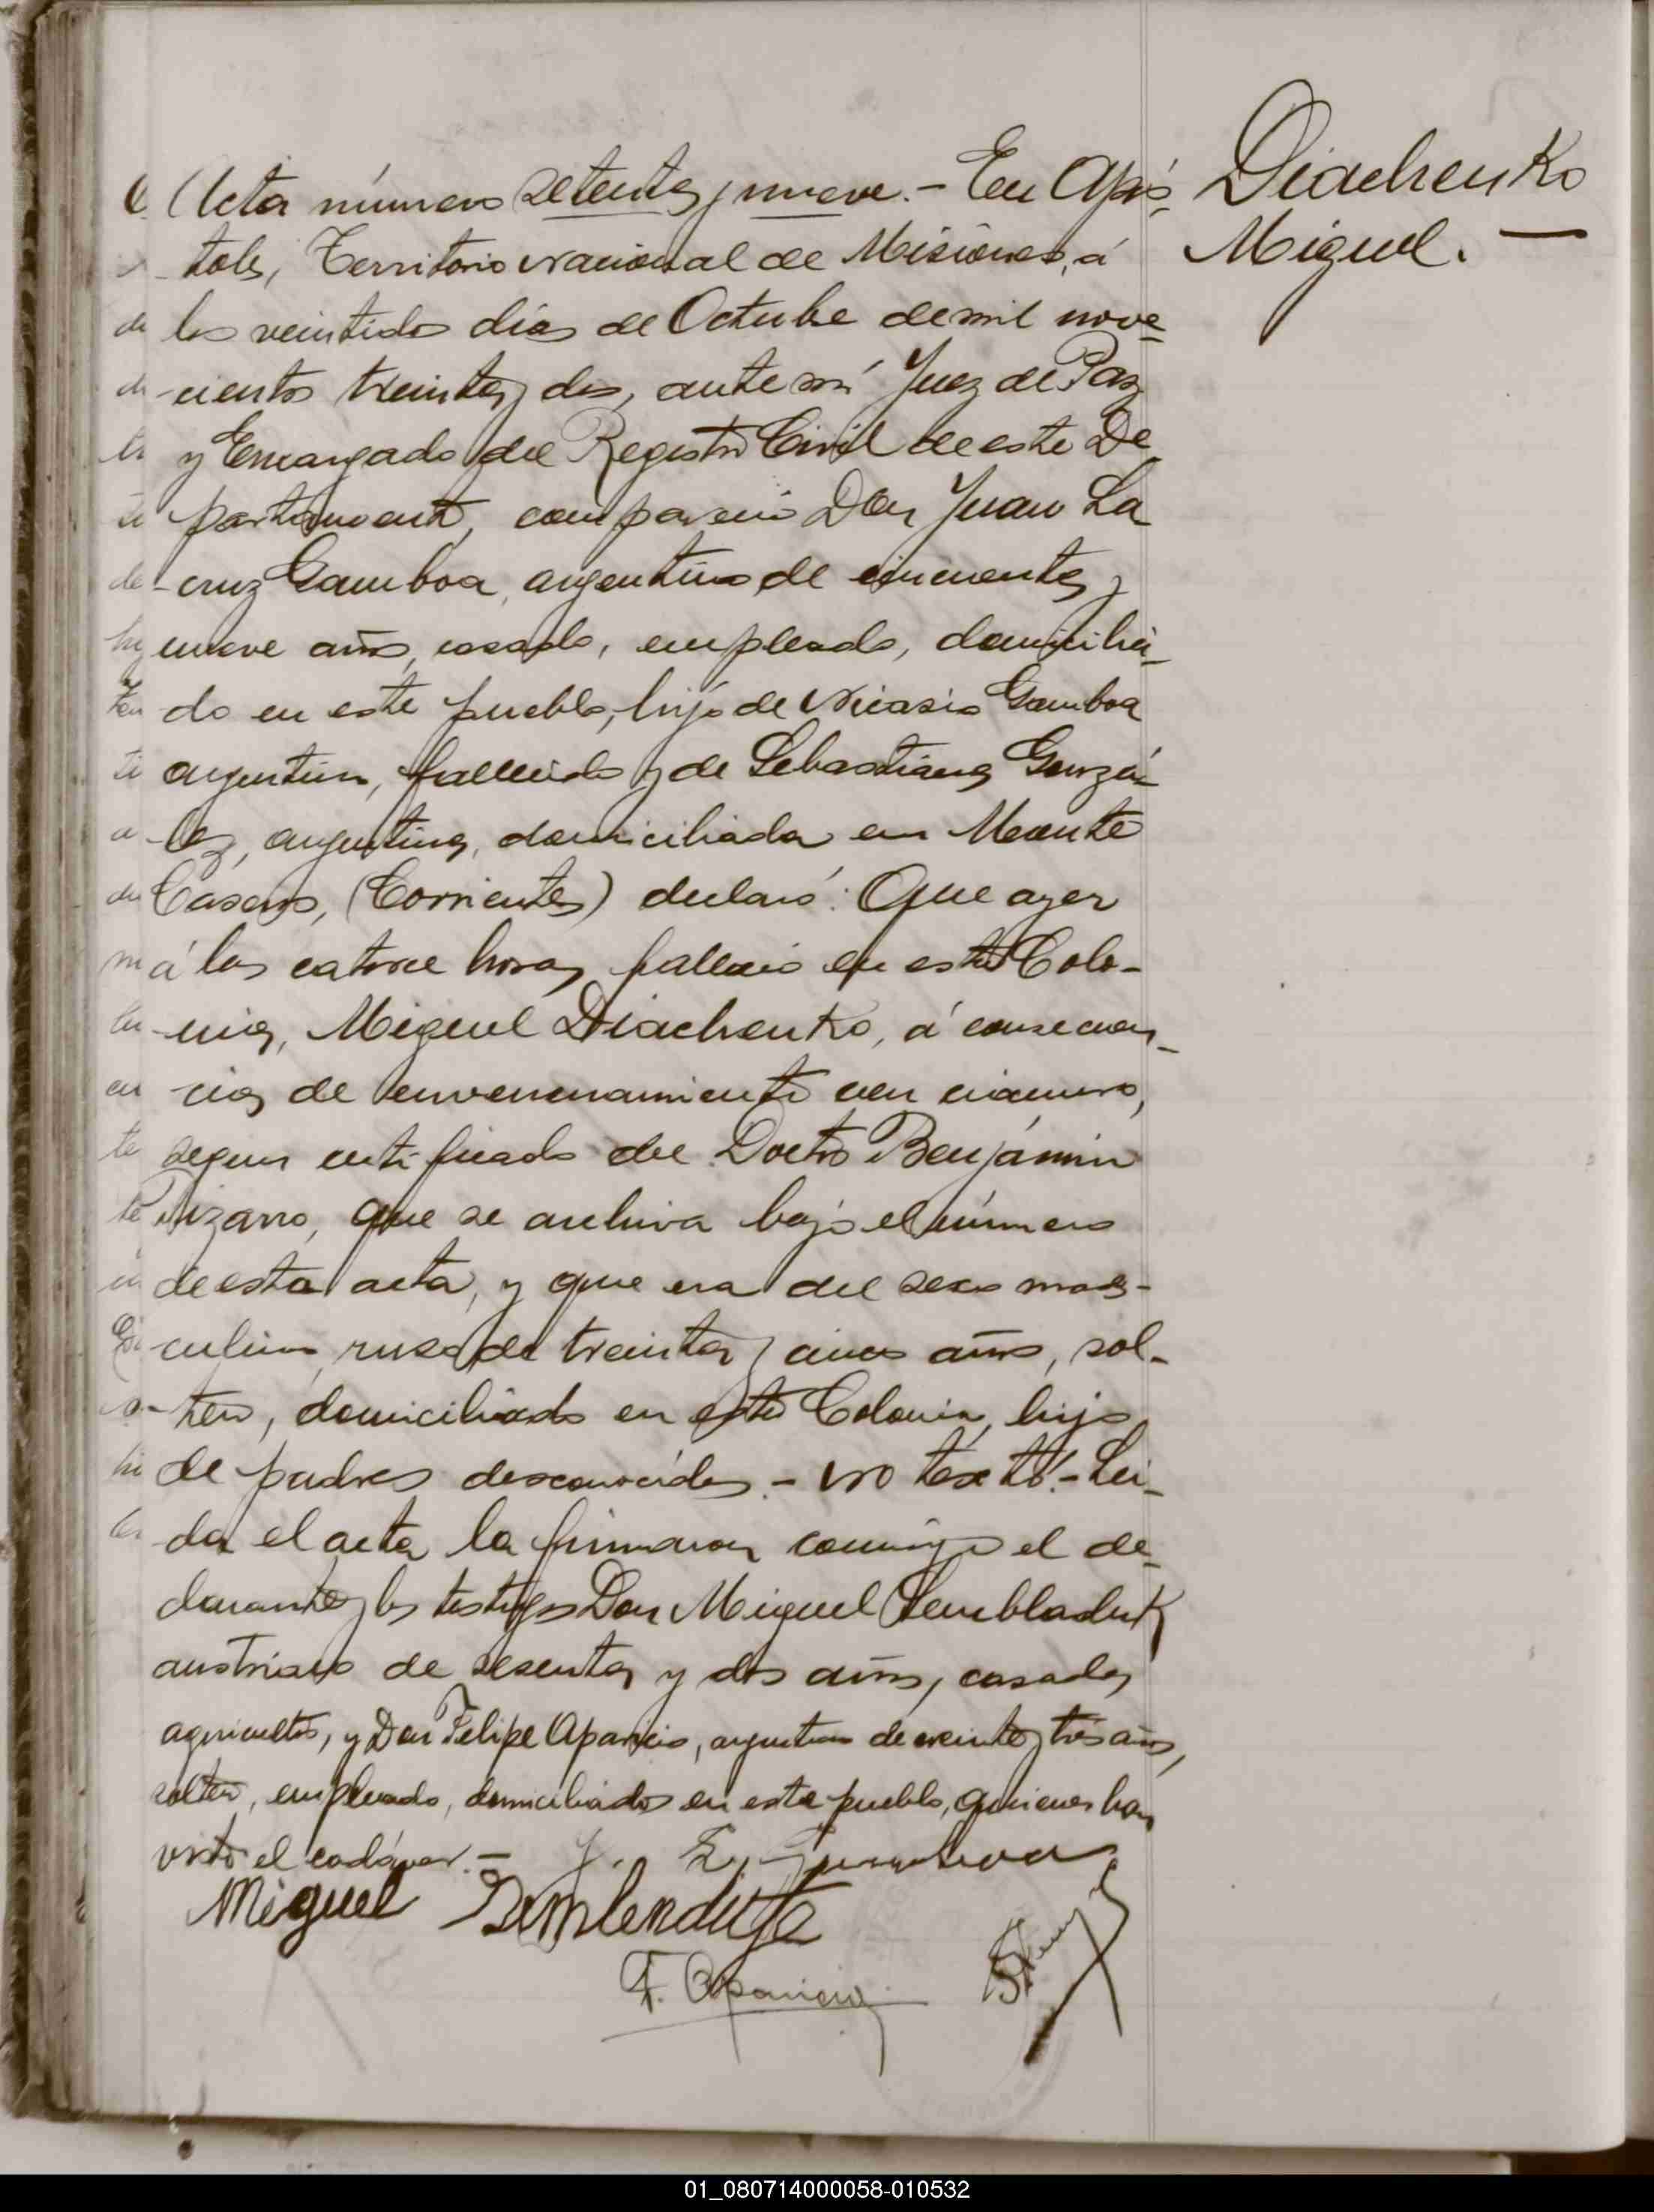 Diachenko
Miguel. —
Acta número setenta y nueve. - En Após-
toles, Territorio Nacional de Misiones, á
los veintidos días de Octubre de mil nove-
-cientos treinta y dos, ante mí Juez de Paz
y Encargado del Registro Civil de este De-
partamento, compareció Don Juan La
-cruz Gamboa, argentino de cincuenta y
nueve años, casado, empleado, domicilia-
do en este pueblo, hijo de Nicasio Gamboa
argentino, fallecido y de Sebastiana Gonzá-
-lez, argentina, domiciliada en Monte
Caseros, (Corrientes) declaró: Que ayer
á las catorce horas falleció en esta Colo-
-nia, Miguel Diachenko, á consecuen-
cia de envenenamiento con cianuro,
segun certificado del Doctor Benjamin
Pizarro, que se archiva bajo el número
de esta acta, y que era del sexo mas-
culino, ruso de treinta y cinco años, sol-
-tero, domiciliado en esta Colonia, hijo
de padres desconocidos. - No testó. - Lei-
da el acta la firmaron conmigo el de-
clarante y los testigos Don Miguel
austriaco de sesenta y dos años, casado,
agricultor, y Don Felipe Aparicio, argentino de veinte y tres años,
soltero, empleado, domiciliados en este pueblo, quienes han
visto el cadáver. -
Miguel
F. Aparicio
01_080714000058-010532